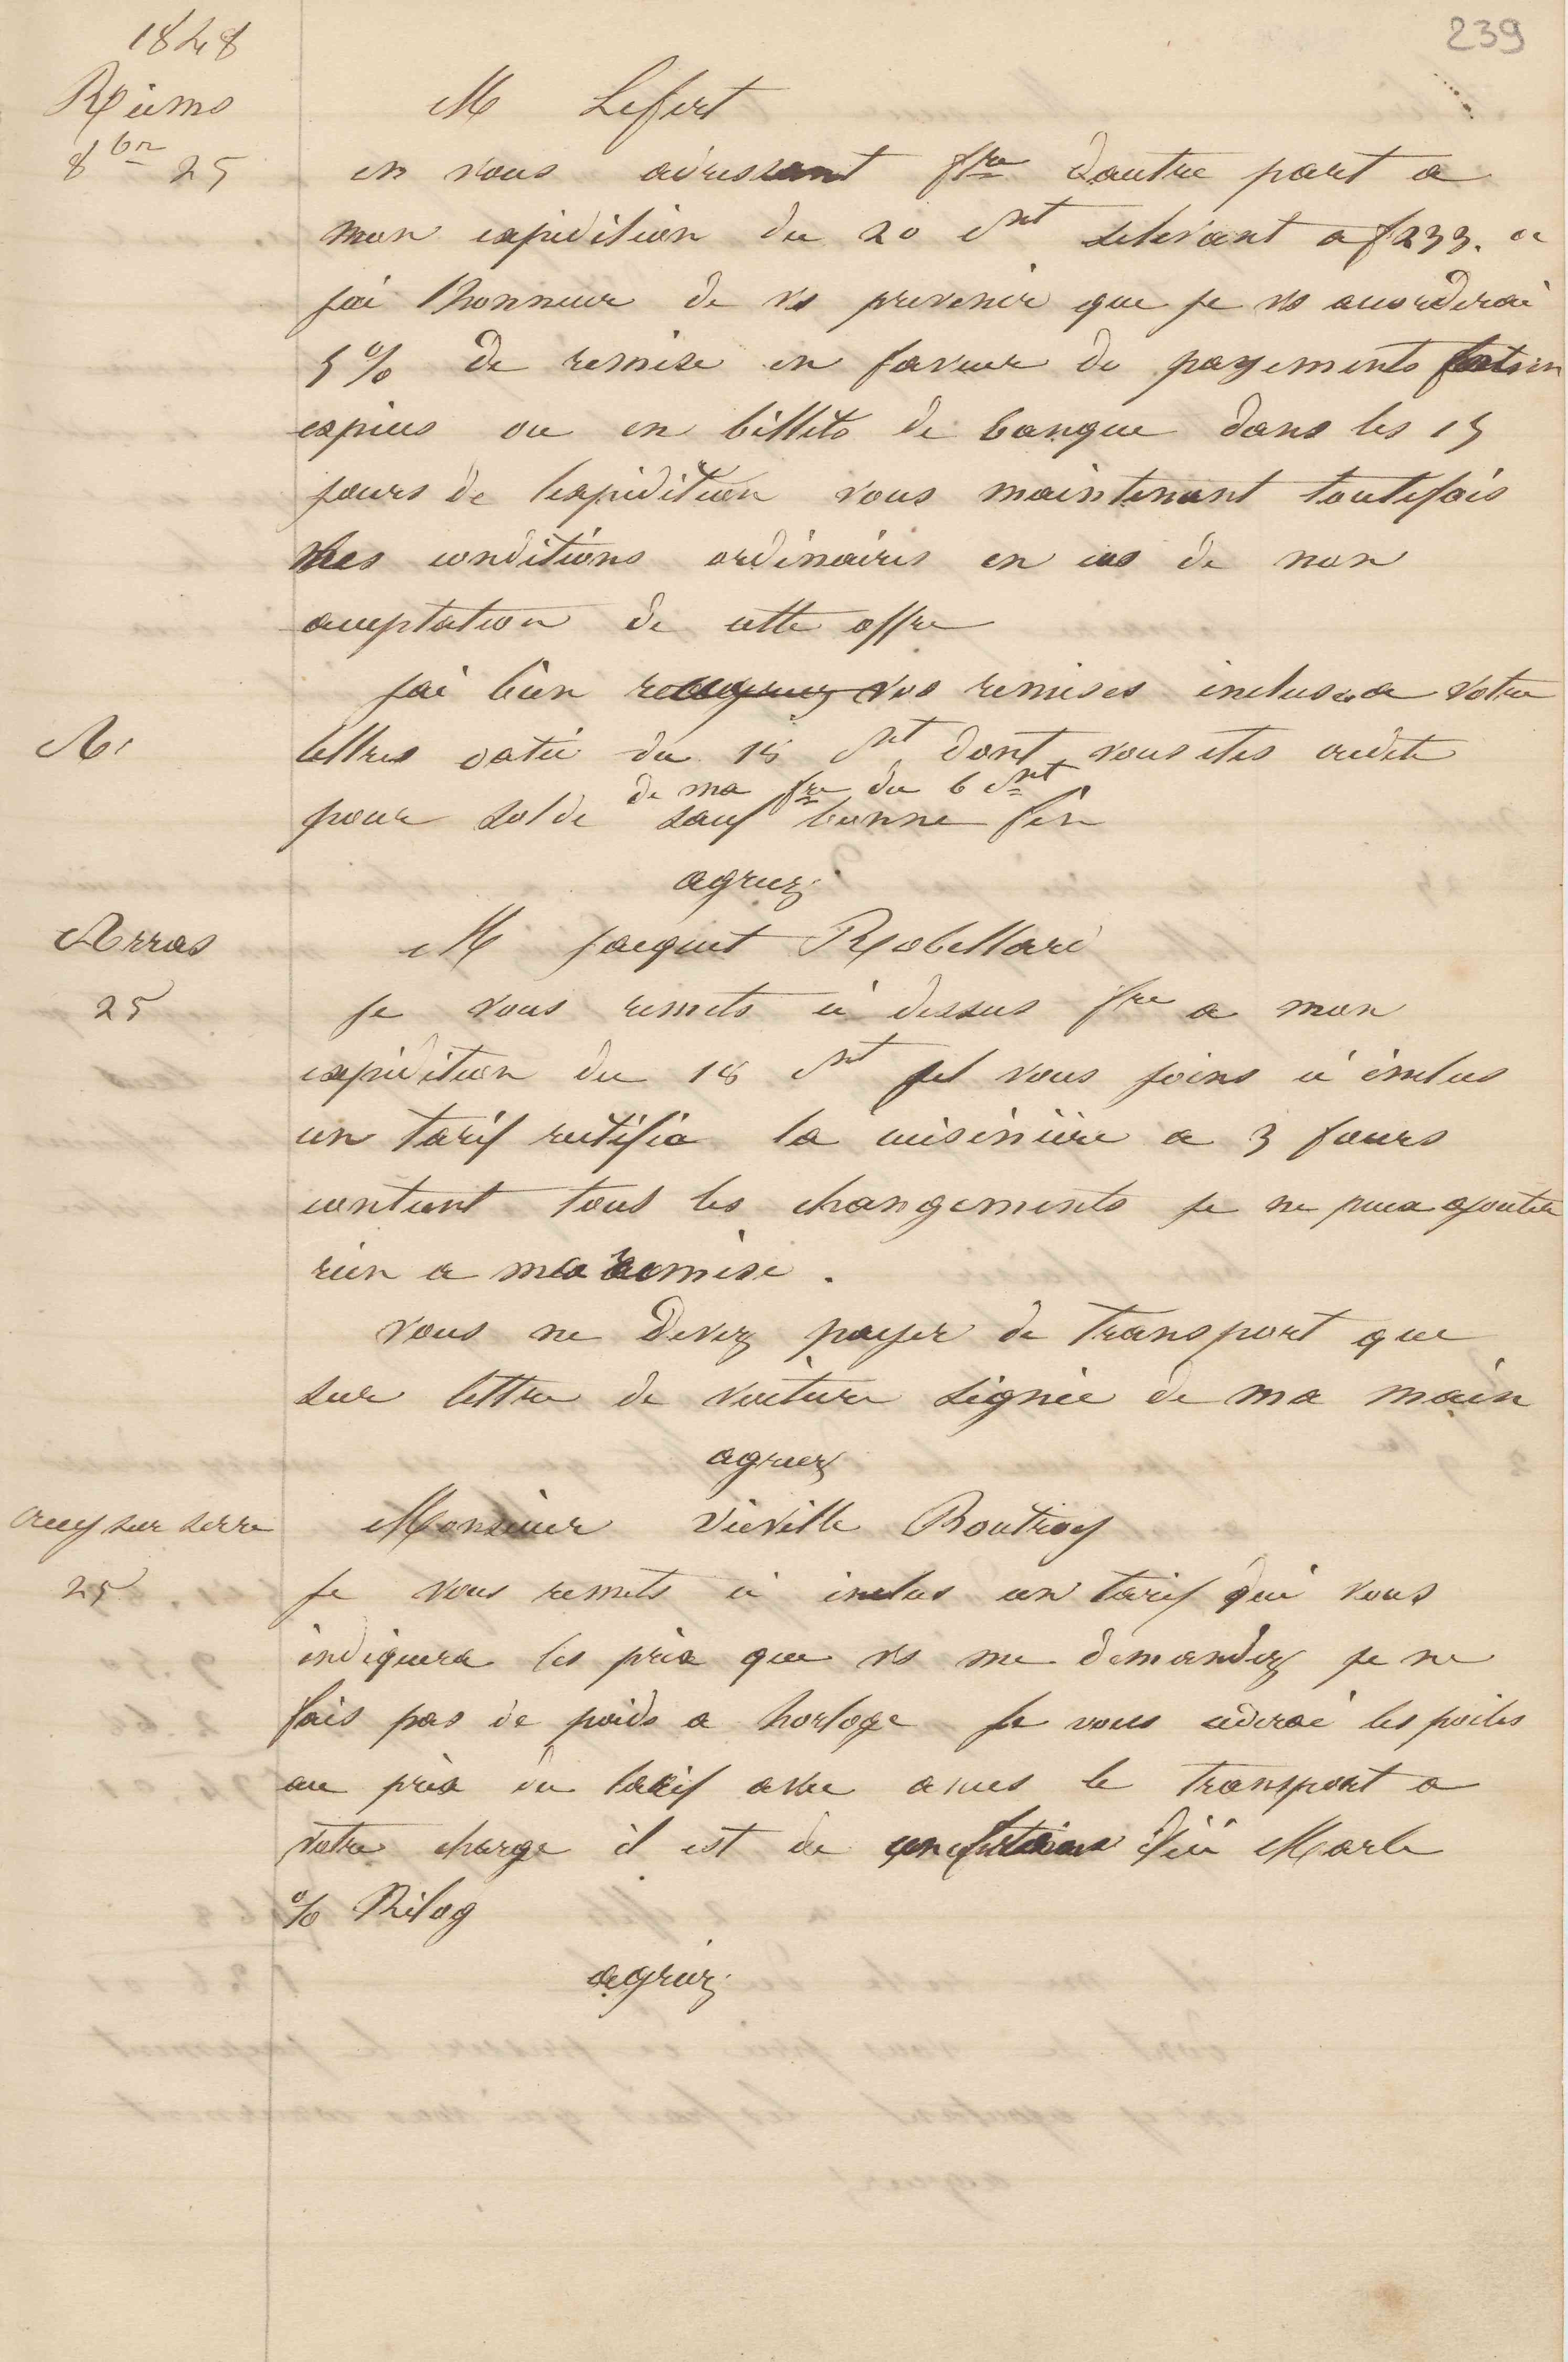 239
1848
Reims
8bre 25
M Lefert
en vous adressant fre dautre part a
mon expedition du 20 ct selevant a f 233. 
jai lhonneur de vs prevenir que je vs accorderai
5% de remise en faveur de payements fait en
espices ou en billets de banque dans les 15
jours de lexpedition vous maintenant toutefois
mes conditions ordinaires en cas de non
acceptation de cette offre
jai bien vos remises incluses a votre
lettres datée du 18 ct dont vous etes credite
de ma fre du 6 ct
pour solde sauf bonne fin
agreez
Arras
25
M Jacquet Robillard
je vous remets ci dessus fre a mon
expedition du 18 ct je vous joins ci inclus
un tarif rectifié la cuisinière a 3 fours
contient tous les changements je ne puis ajouter
rien a ma remise.
vous ne devez payer de transport que
sur lettre de voiture signée de ma main
agreez
Crecy sur serre
25
Monsieur Vieville Boutroy
je vous remets ci inclus un tarif qui vous
indiquera les prix que vs me demandez je ne
fais pas de poids a horloge je vous cederai les poiles
au prix du tarif avec le transport a
votre charge il est de d'ici Marle
% Kilog
agreez